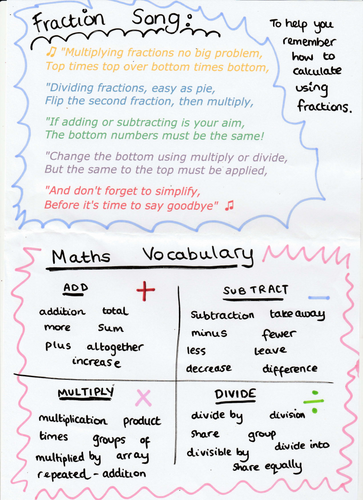 Fraction Song:
To help you
remember
how to
calculate
using
fractions.
♫ "Multiplying fractions no big problem,
Top times top over bottom times bottom,
"Dividing fractions, easy as pie,
Flip the second fraction, then multiply,
"If adding or subtracting is your aim,
The bottom numbers must be the same!
"Change the bottom using multiply or divide,
But the same to the top must be applied,
"And don't forget to simplify,
Before it's time to say goodbye" ♫
Maths Vocabulary
ADD +
addition total
more sum
plus altogether
increase
SUBTRACT −
Subtraction take away
minus fewer
less leave
decrease difference
MULTIPLY ×
multiplication product
times groups of
multiplied by array
repeated - addition
DIVIDE ÷
divide by division
share group
divisible by divide into
share equally